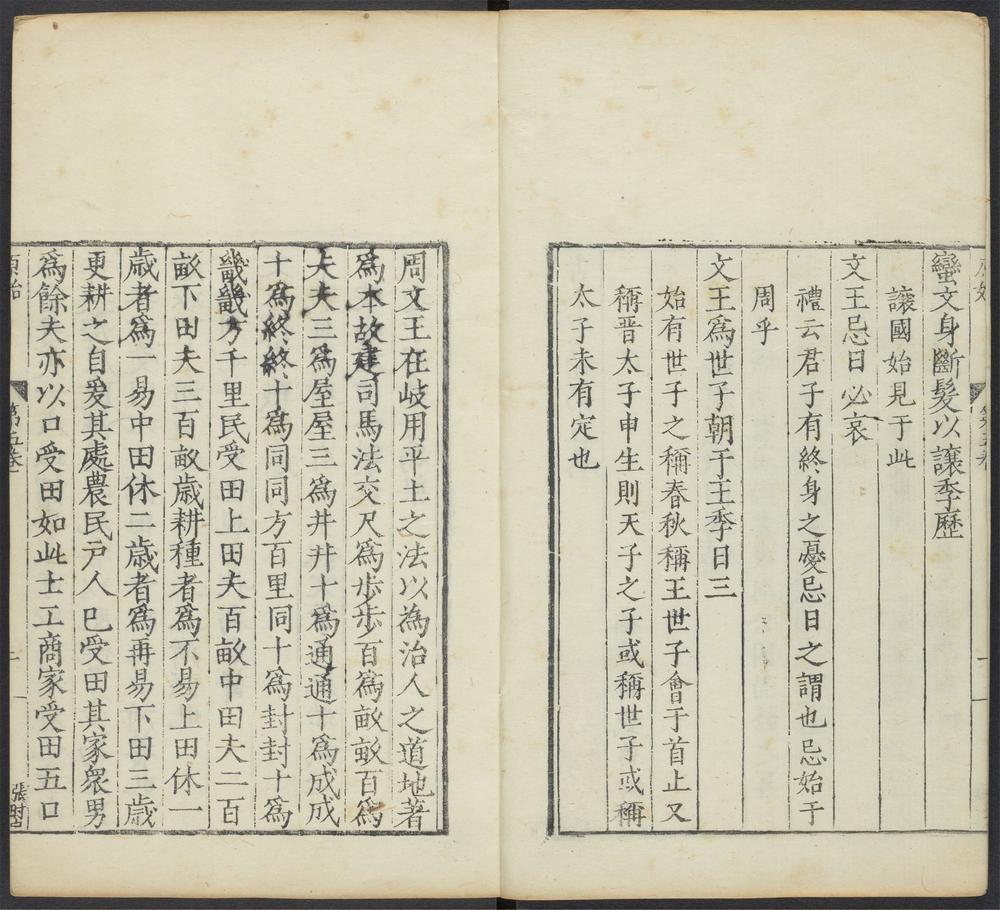 蠻文身斷髮以讓季歷
讓國始見于此
文王忌日必哀
禮云君子有終身之憂忌日之謂也忌始于
周乎
文王為世子朝于王季日三
始有世子之稱春秋稱王世子會于首止又
稱晉太子申生則天子之子或稱世子或稱
太子未有定也
周文王在岐用平土之法以為治人之道地著
為本故建司馬法六尺為步步百為畝畝百為
夫夫三為屋屋三為井井十為通通十為成成
十為終終十為同同方百里同十為封封十為
畿畿方千里民受田上田夫百畝中田夫二百
畝下田夫三百畝歲耕種者為不易上田休一
歲者為一易中田休二歲者為再易下田三歲
更耕之自爰其處農民戶人已受田其家衆男
為餘夫亦以口受田如此士工商家受田五口
原始
第五卷